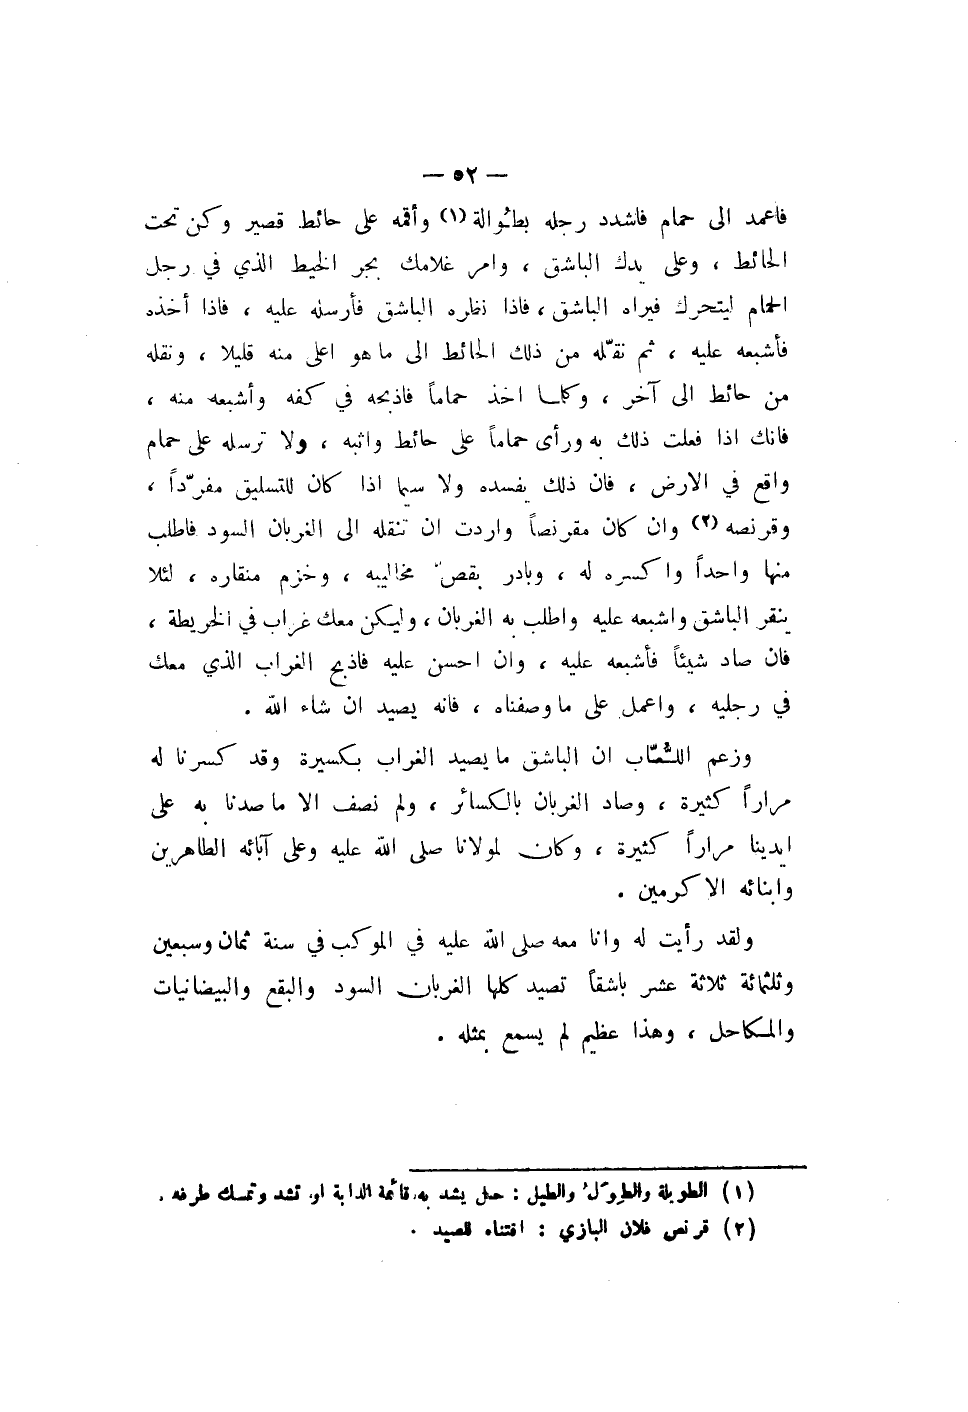 — ٥٢ —
فاعمد الى حمام فاشدد رجله بطُوالة (١) وأقمه على حائط قصير وكن تحت
الحائط ، وعلى يدك الباشق ، وامر غلامك بجر الخيط الذي في رجل
الحمام ليتحرك فيراه الباشق ، فاذا نظره الباشق فأرسله عليه ، فاذا أخذه
فأشبعه عليه ، ثم نقّله من ذلك الحائط الى ما هو اعلى منه قليلا ، ونقله
من حائط الى آخر ، وكلما اخذ حماماً فاذبحه في كفه وأشبعه منه ،
فانك اذا فعلت ذلك به ورأى حماماً على حائط واثبه ، ولا ترسله على حمام
واقع في الارض ، فان ذلك يفسده ولا سيما اذا كان للتسليق مفرّداً ،
وقرنصه (٢) وان كان مقرنصاً واردت ان تنقله الى الغربان السود فاطلب
منها واحداً واكسره له ، وبادر بقصّ مخاليبه ، وخزم منقاره ، لئلا
ينقر الباشق واشبعه عليه واطلب به الغربان ، وليكن معك غراب في الخريطة ،
فان صاد شيئاً فأشبعه عليه ، وان احسن عليه فاذبح الغراب الذي معك
في رجليه ، واعمل على ما وصفناه ، فانه يصيد ان شاء الله .
وزعم اللُعّاب ان الباشق ما يصيد الغراب بكسيرة وقد كسرنا له
مراراً كثيرة ، وصاد الغربان بالكسائر ، ولم نصف الا ما صدنا به على
ايدينا مراراً كثيرة ، وكان لمولانا صلى الله عليه وعلى آبائه الطاهرين
وابنائه الاكرمين .
ولقد رأيت له وانا معه صلى الله عليه في الموكب في سنة ثمان وسبعين
وثلثمائة ثلاثة عشر باشقاً تصيد كلها الغربان السود والبقع والبيضانيات
والمكاحل ، وهذا عظيم لم يسمع بمثله .
(١) الطويلة والطِوَلُ والطيل : حبل يشد به قائمة الدابة او تشد وتمسك طرفه .
(٢) قرنص فلان البازي : اقتناه للصيد .